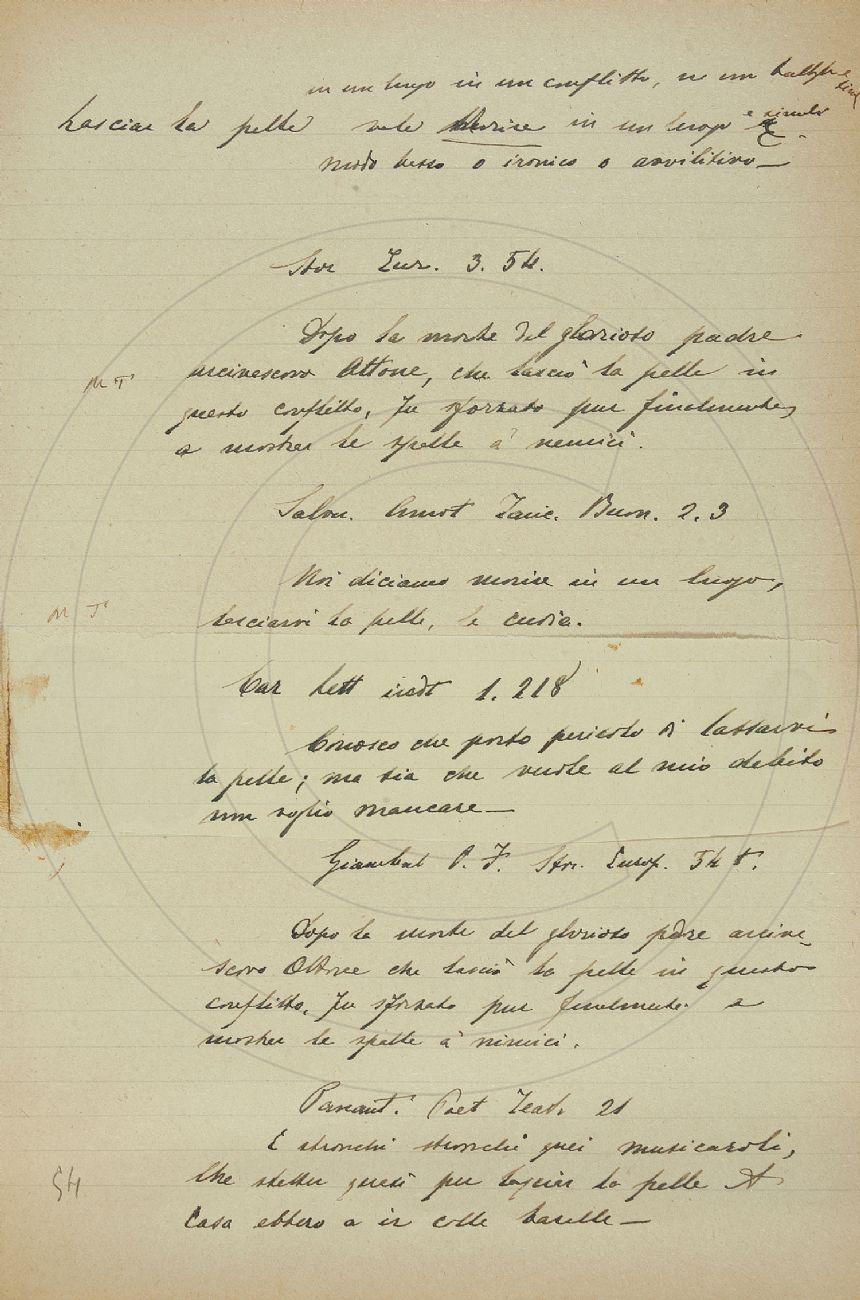 in un luogo in un conflitto, in un
Lasciar la pelle vale Morire in un luogo e simili
modo basso o ironico o avvilitivo —
Stor Eur. 3. 54.
Dopo la morte del glorioso padre
arcivescovo Ottone, che lasciò la pelle in
M T
questo conflitto, fu sforzato pur finalmente,
a mostrar le spalle a' nemici.
Salvn. Annot Tanc. Buon. 2. 3
Noi diciamo morire in un luogo,
M T
lasciarvi la pelle, le cuoia.
Car Lett ined 1. 218
Conosco che porto pericolo di lassarvi
la pelle; ma sia che vuole al mio debito
non voglio mancare —
Giambul P. F. Stor. Europ. 54 t.
Dopo la morte del glorioso padre arcive-
scovo Ottone che lasciò la pelle in questo
conflitto, fu sforzato pur finalmente a
mostrar le spalle a' nimici.
Pananti. Poet Teatr 21
E stronchi stronchi quei musicaroli,
Che stetter quasi per lasciar la pelle A
GH
Casa ebbero a ir colle barelle —